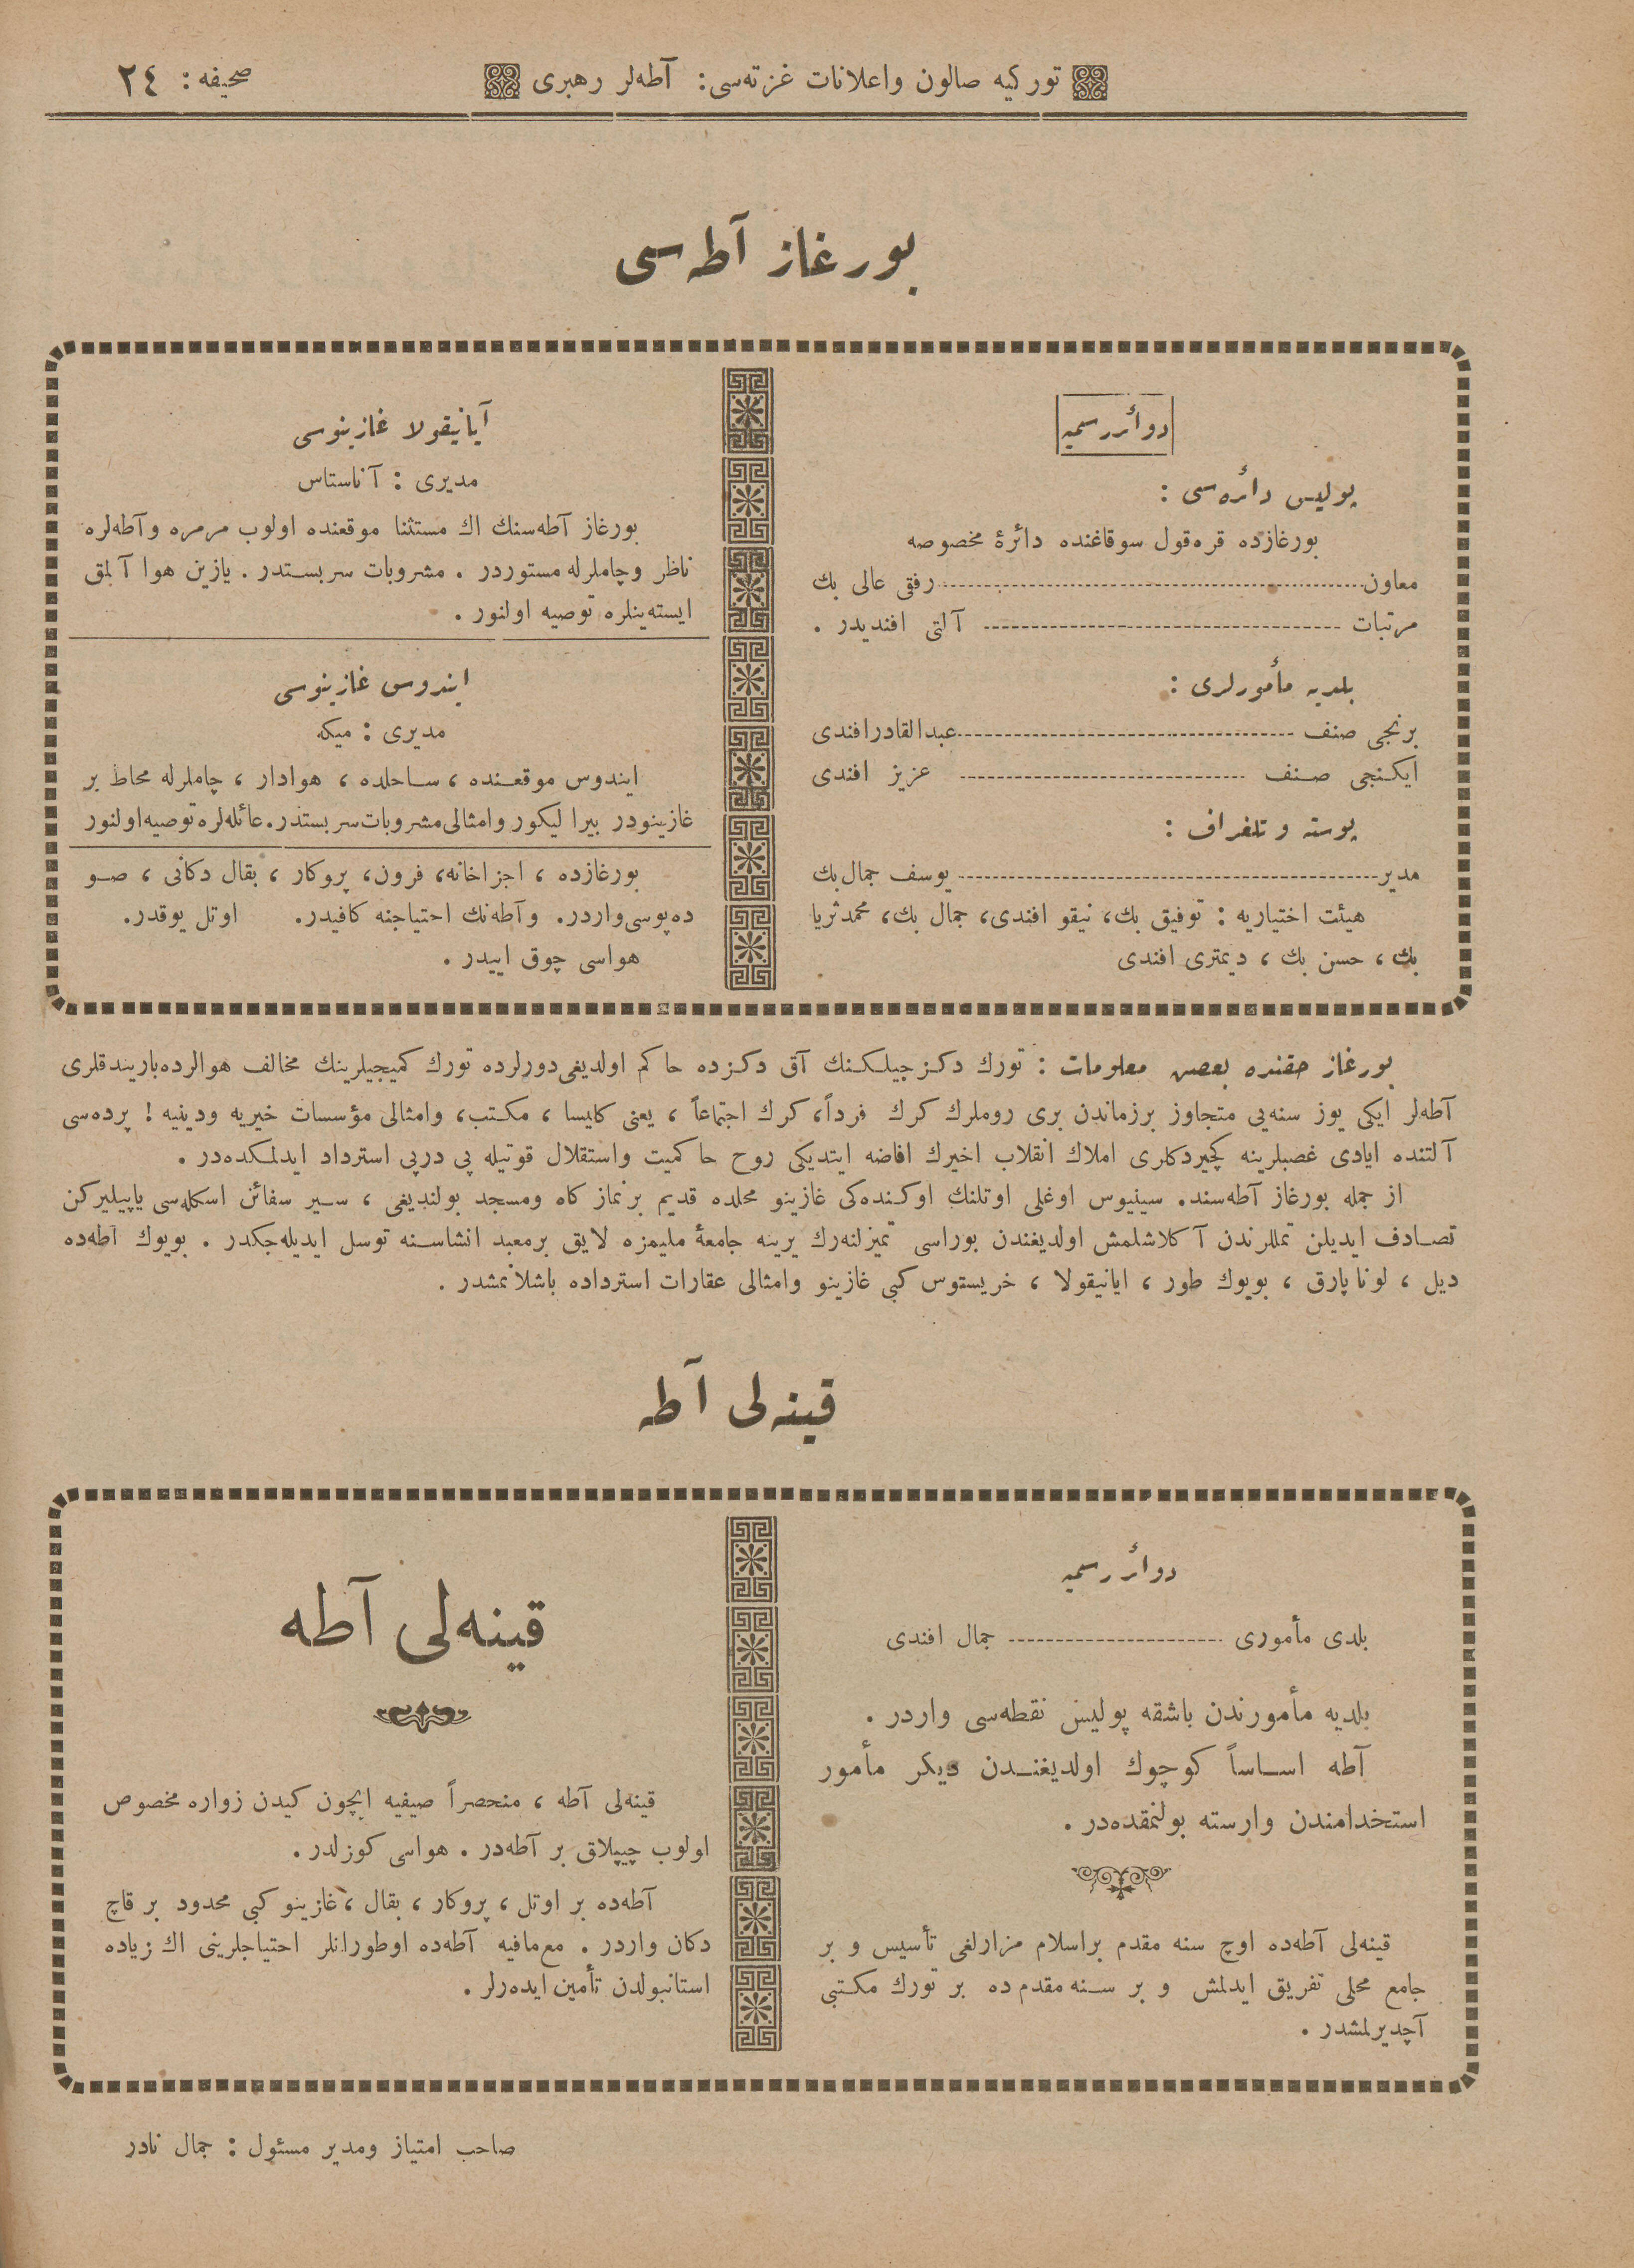 توركیه صالون واعلانات غزته‌سی: آطه‌لر رهبری
صحیفه: ٢٤
بورغاز آطه‌سی
دوائر رسمیه
پولیس دائره‌سی :
بورغازده قره‌قول سوقاغنده دائرهٔ مخصوصه
معاون ........ رفقی عالی بك
مرتبات ........ آلتی افندیدر .
بلدیه مأمورلری :
برنجی صنف ........ عبدالقادر افندی
ایكنجی صنف ........ عزیز افندی
پوسته و تلغراف :
مدیر ........ یوسف جمال بك
هیئت اختیاریه : توفیق بك، نیقو افندی، جمال بك، محمد ثریا
بك ، حسن بك ، دیمتری افندی
آیانیقولا غازینوسی
مدیری : آناستاس
بورغاز آطه‌سنك اك مستثنا موقعنده اولوب مرمره وآطه‌لره
ناظر وچاملرله مستوردر . مشروبات سربستدر . یازین هوا آلمق
ایسته‌ینلره توصیه اولنور .
ایندوس غازینوسی
مدیری : میكه
ایندوس موقعنده ، ساحلده ، هوادار ، چاملرله محاط بر
غازینودر بیرا لیكور وامثالی مشروبات سربستدر. عائله‌لره توصیه اولنور
بورغازده ، اجزاخانه، فرون، پروكار ، بقال دكانی ، صو
ده‌پوسی واردر. وآطه‌نك احتیاجنه كافیدر. اوتل یوقدر.
هواسی چوق اییدر .
بورغاز حقنده بعض معلومات : تورك دكزجیلكنك آق دكزده حاكم اولدیغی دورلرده تورك كمیجیلرینك مخالف هوالرده باریندقلری
آطه‌لر ایكی یوز سنه‌یی متجاوز برزماندن بری روملرك كرك فرداً، كرك اجتماعاً ، یعنی كلیسا ، مكتب، وامثالی مؤسسات خیریه ودینیه ! پرده‌سی
آلتنده ایادی غصبلرینه كچیردكلری املاك انقلاب اخیرك افاضه ایتدیكی روح حاكمیت واستقلال قوتیله پی درپی استرداد ایدلمكده‌در .
از جمله بورغاز آطه‌سند. سینیوس اوغلی اوتلنك اوكنده‌كی غازینو محلده قدیم برنماز كاه ومسجد بولندیغی ، سیر سفائن اسكله‌سی یاپیلیركن
تصادف ایدیلن تمللرندن آكلاشلمش اولدیغندن بوراسی تمیزلنه‌رك یرینه جامعهٔ ملیمزه لایق برمعبد انشاسنه توسل ایدیله‌جكدر . بویوك آطه‌ده
دیل ، لوناپارق ، بویوك طور ، ایانیقولا ، خریستوس كبی غازینو وامثالی عقارات استرداده باشلانمشدر .
قینه‌لی آطه
دوائر رسمیه
بلدی مأموری ........ جمال افندی
بلدیه مأمورندن باشقه پولیس نقطه‌سی واردر .
آطه اساساً كوچوك اولدیغندن دیكر مأمور
استخدامندن وارسته بولنمقده‌در .
قینه‌لی آطه‌ده اوچ سنه مقدم براسلام مزارلغی تأسیس و بر
جامع محلی تفریق ایدلمش و بر سنه مقدم ده بر تورك مكتبی
آچدیرلمشدر .
قینه‌لی آطه
قینه‌لی آطه ، منحصراً صیفیه ایچون كیدن زواره مخصوص
اولوب چیپلاق بر آطه‌در . هواسی كوزلدر.
آطه‌ده بر اوتل ، پروكار ، بقال ، غازینو كبی محدود بر قاچ
دكان واردر . مع‌مافیه آطه‌ده اوطورانلر احتیاجلرینی اك زیاده
استانبولدن تأمین ایده‌رلر .
صاحب امتیاز ومدیر مسئول : جمال نادر